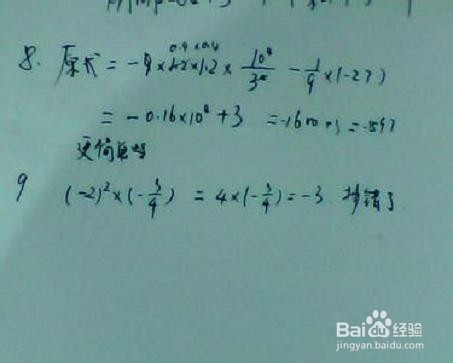 8. 原式 = -9×1.2×1.2× 10⁴/3² - 1/9 ×(-27)
0.4×0.4
= -0.16×10⁴+3 = -1600+3 = -1597
更简单吗
9 (-2)²×(-3/4) = 4×(-3/4) = -3 抄错了
Bai百度经验
jingyan.baidu.com